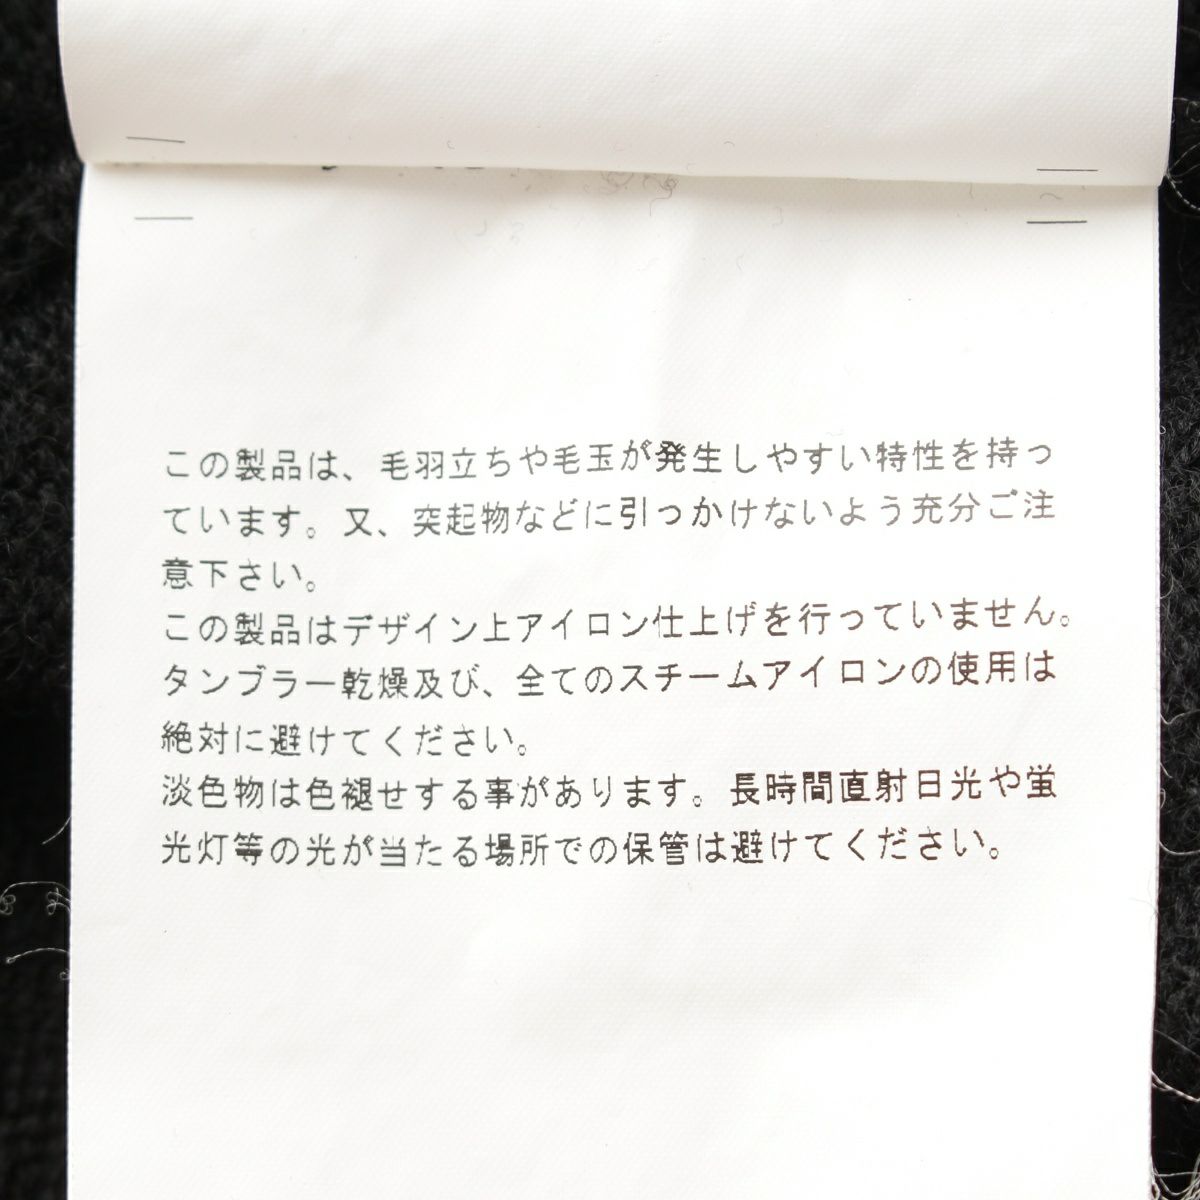 この製品は、毛羽立ちや毛玉が発生しやすい特性を持っ
ています。又、突起物などに引っかけないよう充分ご注
意下さい。
この製品はデザイン上アイロン仕上げを行っていません。
タンブラー乾燥及び、全てのスチームアイロンの使用は
絶対に避けてください。
淡色物は色褪せする事があります。長時間直射日光や蛍
光灯等の光が当たる場所での保管は避けてください。